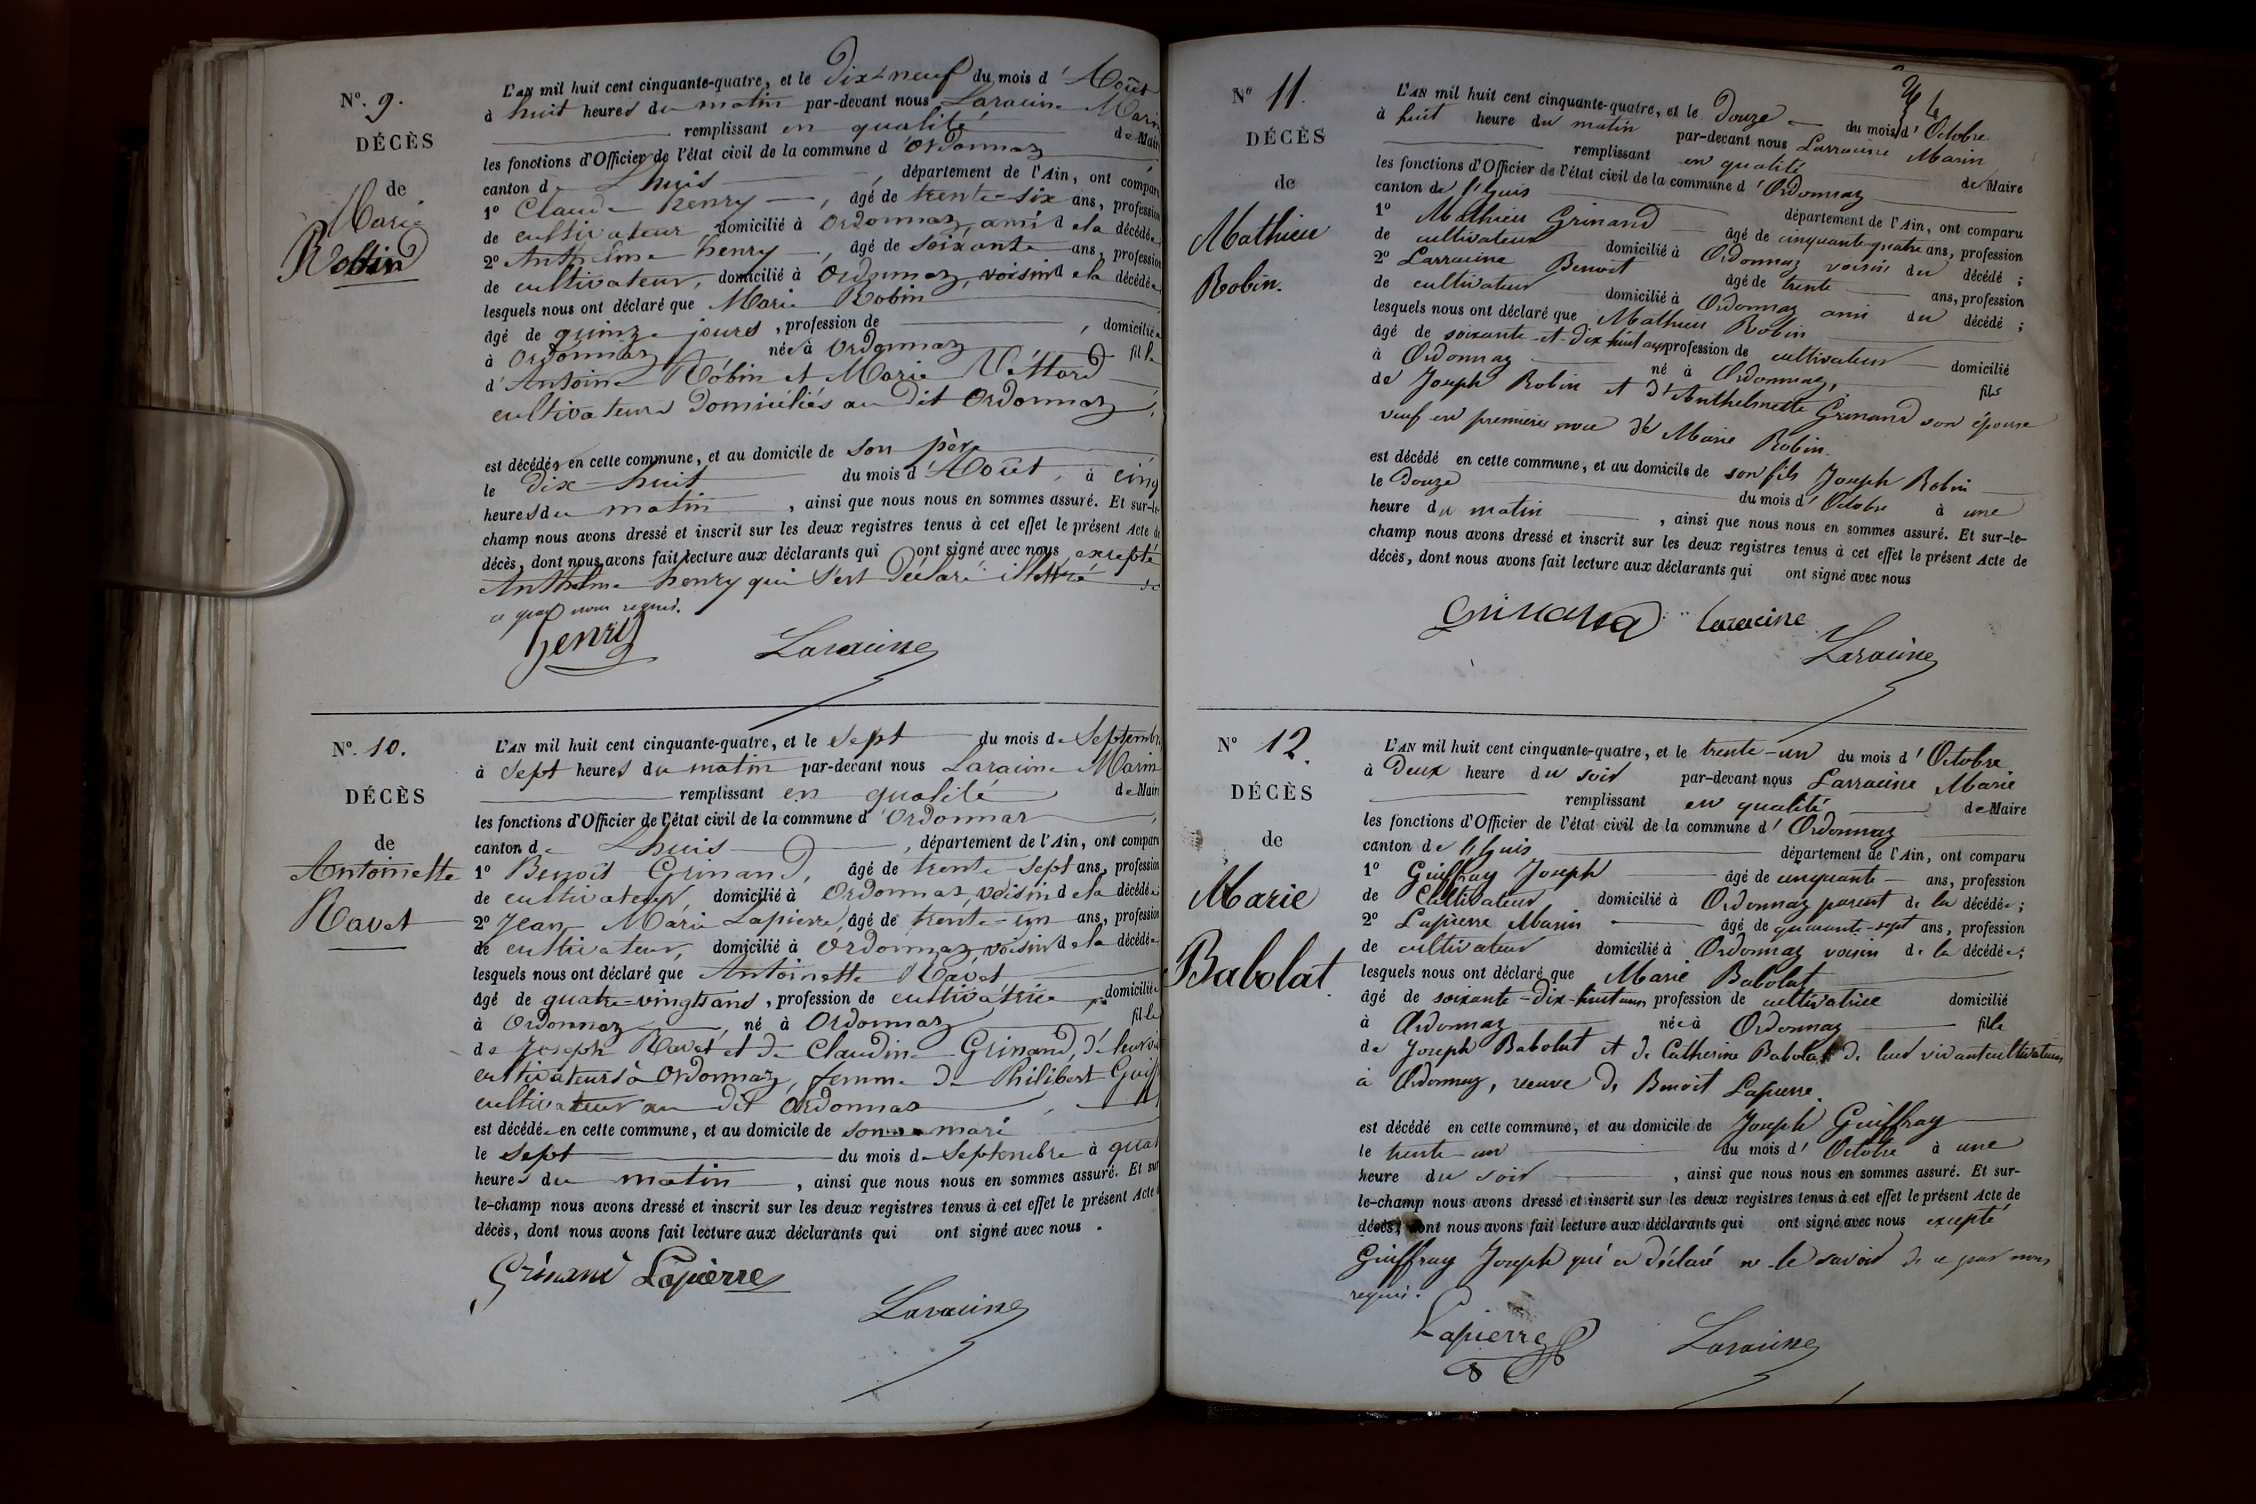 N°. 9.
DÉCÈS
de
Marie
Robin
L'AN mil huit cent cinquante-quatre, et le Dix-neuf du mois d'Août
à huit heures du matin par-devant nous Laracine Marin
remplissant en qualité de Maire
les fonctions d'Officier de l'état civil de la commune d'Ordonnaz
canton de Lhuis, département de l'Ain, ont comparu
1° Claude henry, âgé de trente-six ans, profession
de cultivateur, domicilié à Ordonnaz, ami de la décédée
2° Anthelme henry, âgé de soixante ans, profession
de cultivateur, domicilié à Ordonnaz, voisin de la décédée
lesquels nous ont déclaré que Marie Robin
âgé de quinze jours, profession de , domiciliée
à Ordonnaz née à Ordonnaz fille
d'Antoine Robin et Marie Vettard
cultivateurs domiciliés au dit Ordonnaz,
est décédée en cette commune, et au domicile de son père
le dix-huit du mois d'Août, à cinq
heures du matin, ainsi que nous nous en sommes assuré. Et sur-le-
champ nous avons dressé et inscrit sur les deux registres tenus à cet effet le présent Acte de
décès, dont nous avons fait lecture aux déclarants qui ont signé avec nous excepté
Anthelme henry qui s'est déclaré illettré de
ce que nous requis.
henry Laracine
N°. 10.
DÉCÈS
de
Antoinette
Ravet
L'AN mil huit cent cinquante-quatre, et le sept du mois de Septembre
à sept heures du matin par-devant nous Laracine Marin
remplissant en qualité de Maire
les fonctions d'Officier de l'état civil de la commune d'Ordonnaz
canton de Lhuis, département de l'Ain, ont comparu
1° Benoît Grinand, âgé de trente-sept ans, profession
de cultivateur, domicilié à Ordonnaz, voisin de la décédée
2° Jean Marie Lapierre, âgé de trente-un ans, profession
de cultivateur, domicilié à Ordonnaz, voisin de la décédée
lesquels nous ont déclaré que Antoinette Ravet
âgé de quatre-vingt ans, profession de cultivatrice, domiciliée
à Ordonnaz, né à Ordonnaz fille
de Joseph Ravet et de Claudine Grinand, de leur vi
cultivateurs à Ordonnaz, femme de Philibert Guiff
cultivateur au dit Ordonnaz
est décédée en cette commune, et au domicile de son mari
le sept du mois de Septembre à quat
heures du matin, ainsi que nous nous en sommes assuré. Et sur
le-champ nous avons dressé et inscrit sur les deux registres tenus à cet effet le présent Acte
décès, dont nous avons fait lecture aux déclarants qui ont signé avec nous.
Grinand Lapierre
Laracine
N° 11.
DÉCÈS
de
Mathieu
Robin.
L'AN mil huit cent cinquante-quatre, et le Douze du mois d'Octobre
à huit heure du matin par-devant nous Larracine Marin
remplissant en qualité de Maire
les fonctions d'Officier de l'état civil de la commune d'Ordonnaz
canton de l'huis département de l'Ain, ont comparu
1° Mathieu Grinand âgé de cinquante-quatre ans, profession
de cultivateur domicilié à Ordonnaz voisin du décédé;
2° Larracine Benoit âgé de trente ans, profession
de cultivateur domicilié à Ordonnaz ami du décédé;
lesquels nous ont déclaré que Mathieu Robin
âgé de soixante-et-dix-huit ans profession de cultivateur domicilié
à Ordonnaz né à Ordonnaz, fils
de Joseph Robin et d'Anthelmette Grinand son épouse
veuf en première noce de Marie Robin.
est décédé en cette commune, et au domicile de son fils Joseph Robin
le Douze du mois d'Octobre à une
heure du matin, ainsi que nous nous en sommes assuré. Et sur-le-
champ nous avons dressé et inscrit sur les deux registres tenus à cet effet le présent Acte de
décès, dont nous avons fait lecture aux déclarants qui ont signé avec nous
Grinand Laracine
Laracine
N° 12.
DÉCÈS
de
Marie
Babolat.
L'AN mil huit cent cinquante-quatre, et le trente-un du mois d'Octobre
à Deux heure du soir par-devant nous Larracine Marin
remplissant en qualité de Maire
les fonctions d'Officier de l'état civil de la commune d'Ordonnaz
canton de l'huis département de l'Ain, ont comparu
1° Guiffray Joseph âgé de cinquante ans, profession
de Cultivateur domicilié à Ordonnaz parent de la décédée;
2° Lapierre Marin âgé de quarante-sept ans, profession
de cultivateur domicilié à Ordonnaz voisin de la décédée;
lesquels nous ont déclaré que Marie Babolat
âgé de soixante-dix-huit ans profession de cultivatrice domicilié
à Ordonnaz née à Ordonnaz fille
de Joseph Babolat et de Catherine Babolat de leur vivant cultivateurs
à Ordonnaz, veuve de Benoit Lapierre.
est décédé en cette commune, et au domicile de Joseph Guiffray
le trente-un du mois d'Octobre à une
heure du soir, ainsi que nous nous en sommes assuré. Et sur-
le-champ nous avons dressé et inscrit sur les deux registres tenus à cet effet le présent Acte de
décès, dont nous avons fait lecture aux déclarants qui ont signé avec nous excepté
Guiffray Joseph qui a déclaré ne le savoir de ce par nous
requis.
Lapierre Laracine